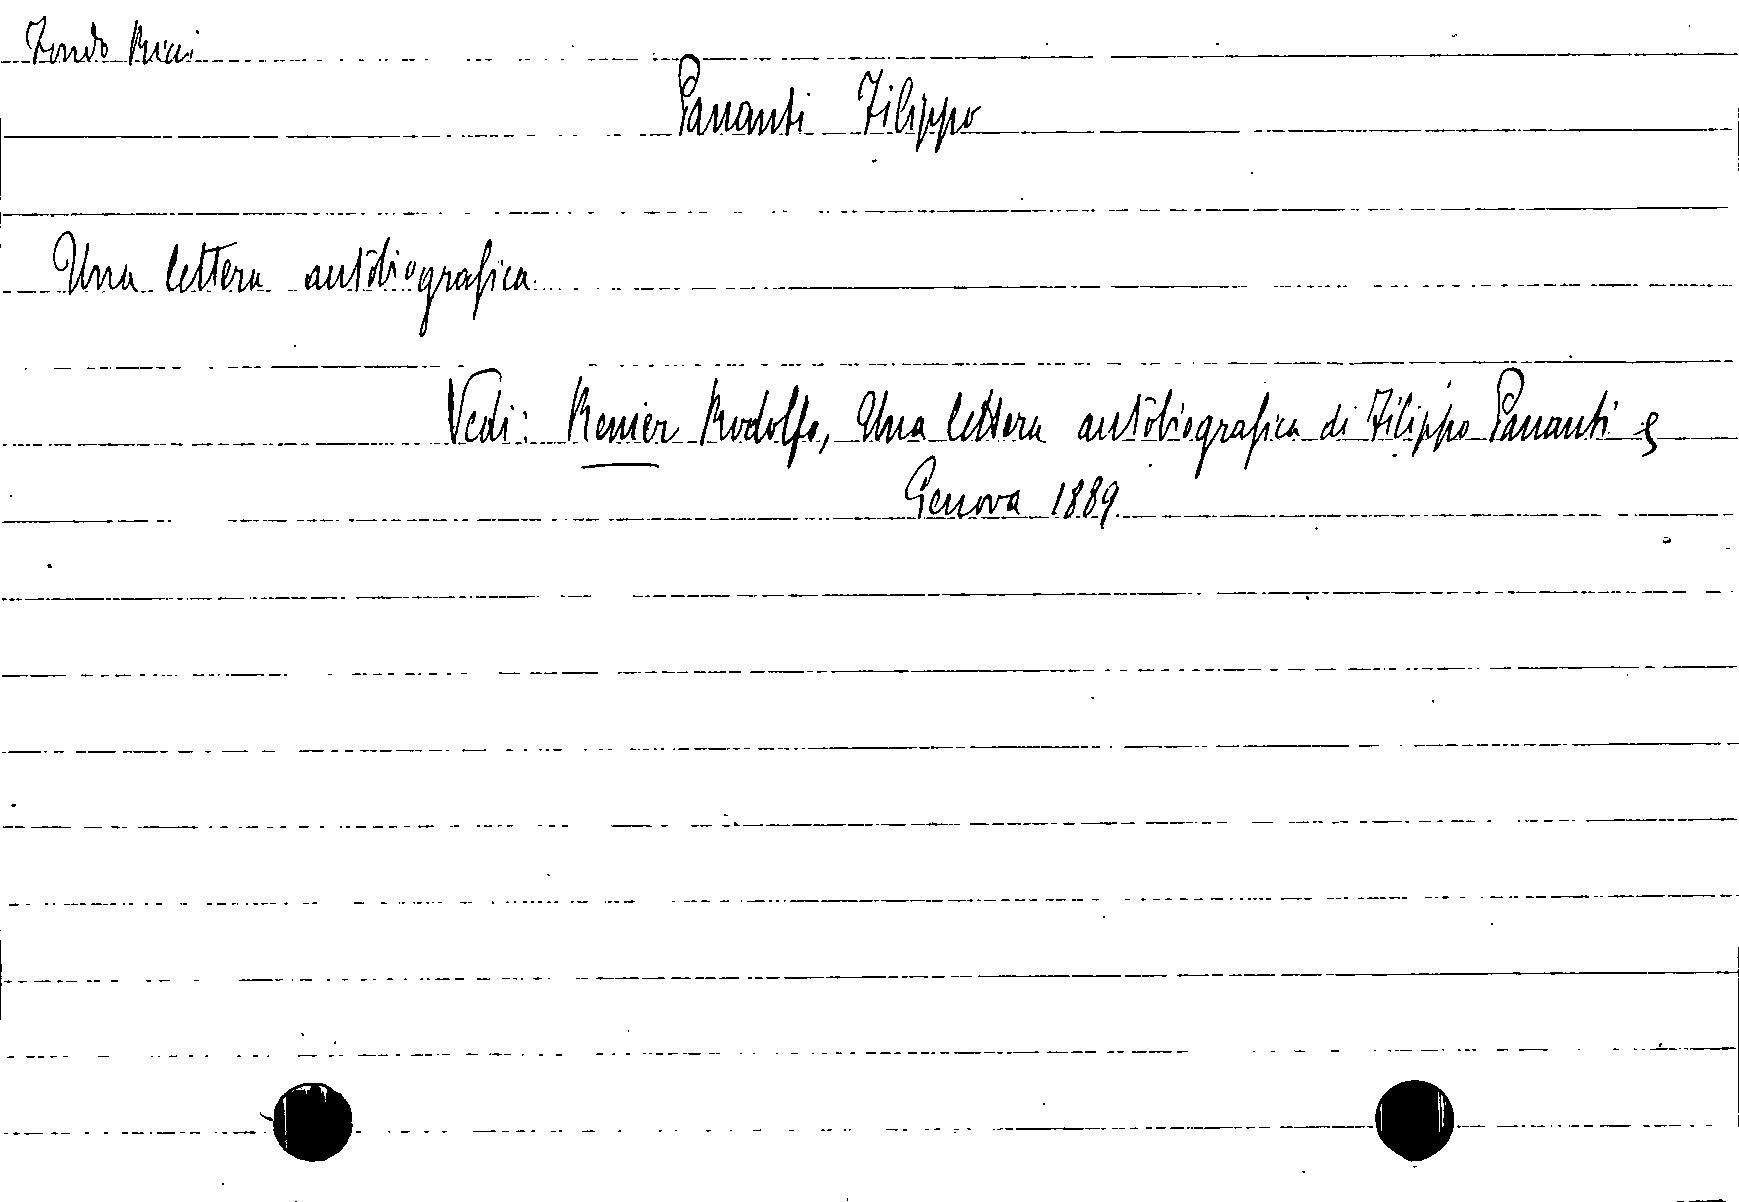 Fondo Ricci
Pananti Filippo
Una lettera autobiografica
Vedi: Renier Rodolfo, Una lettera autobiografica di Filippo Pananti
Genova 1889.